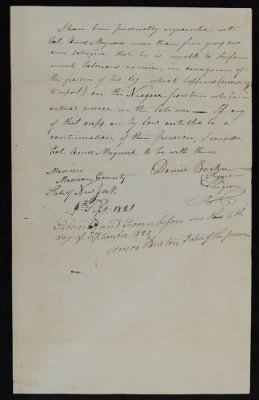 I have been personally acquainted with
Col. Amos Maynard more than four years and
am satisfied that he is unable to perform
much laborious exercise in consequence of
the fracture of his leg which happened (according
to report) on the Niagara frontier while in
actual service in the late war — If any
of that corps are by law entitled to a
continuation of their pension, I consider
Col. Amos Maynard to be with them
Daniel Barker
Physician
Surgeon
Madison
Madison County
State of New York
6th Sept 1821
Subscribed and Sworn before me this 6th
day of September 1821
Justice of the peace